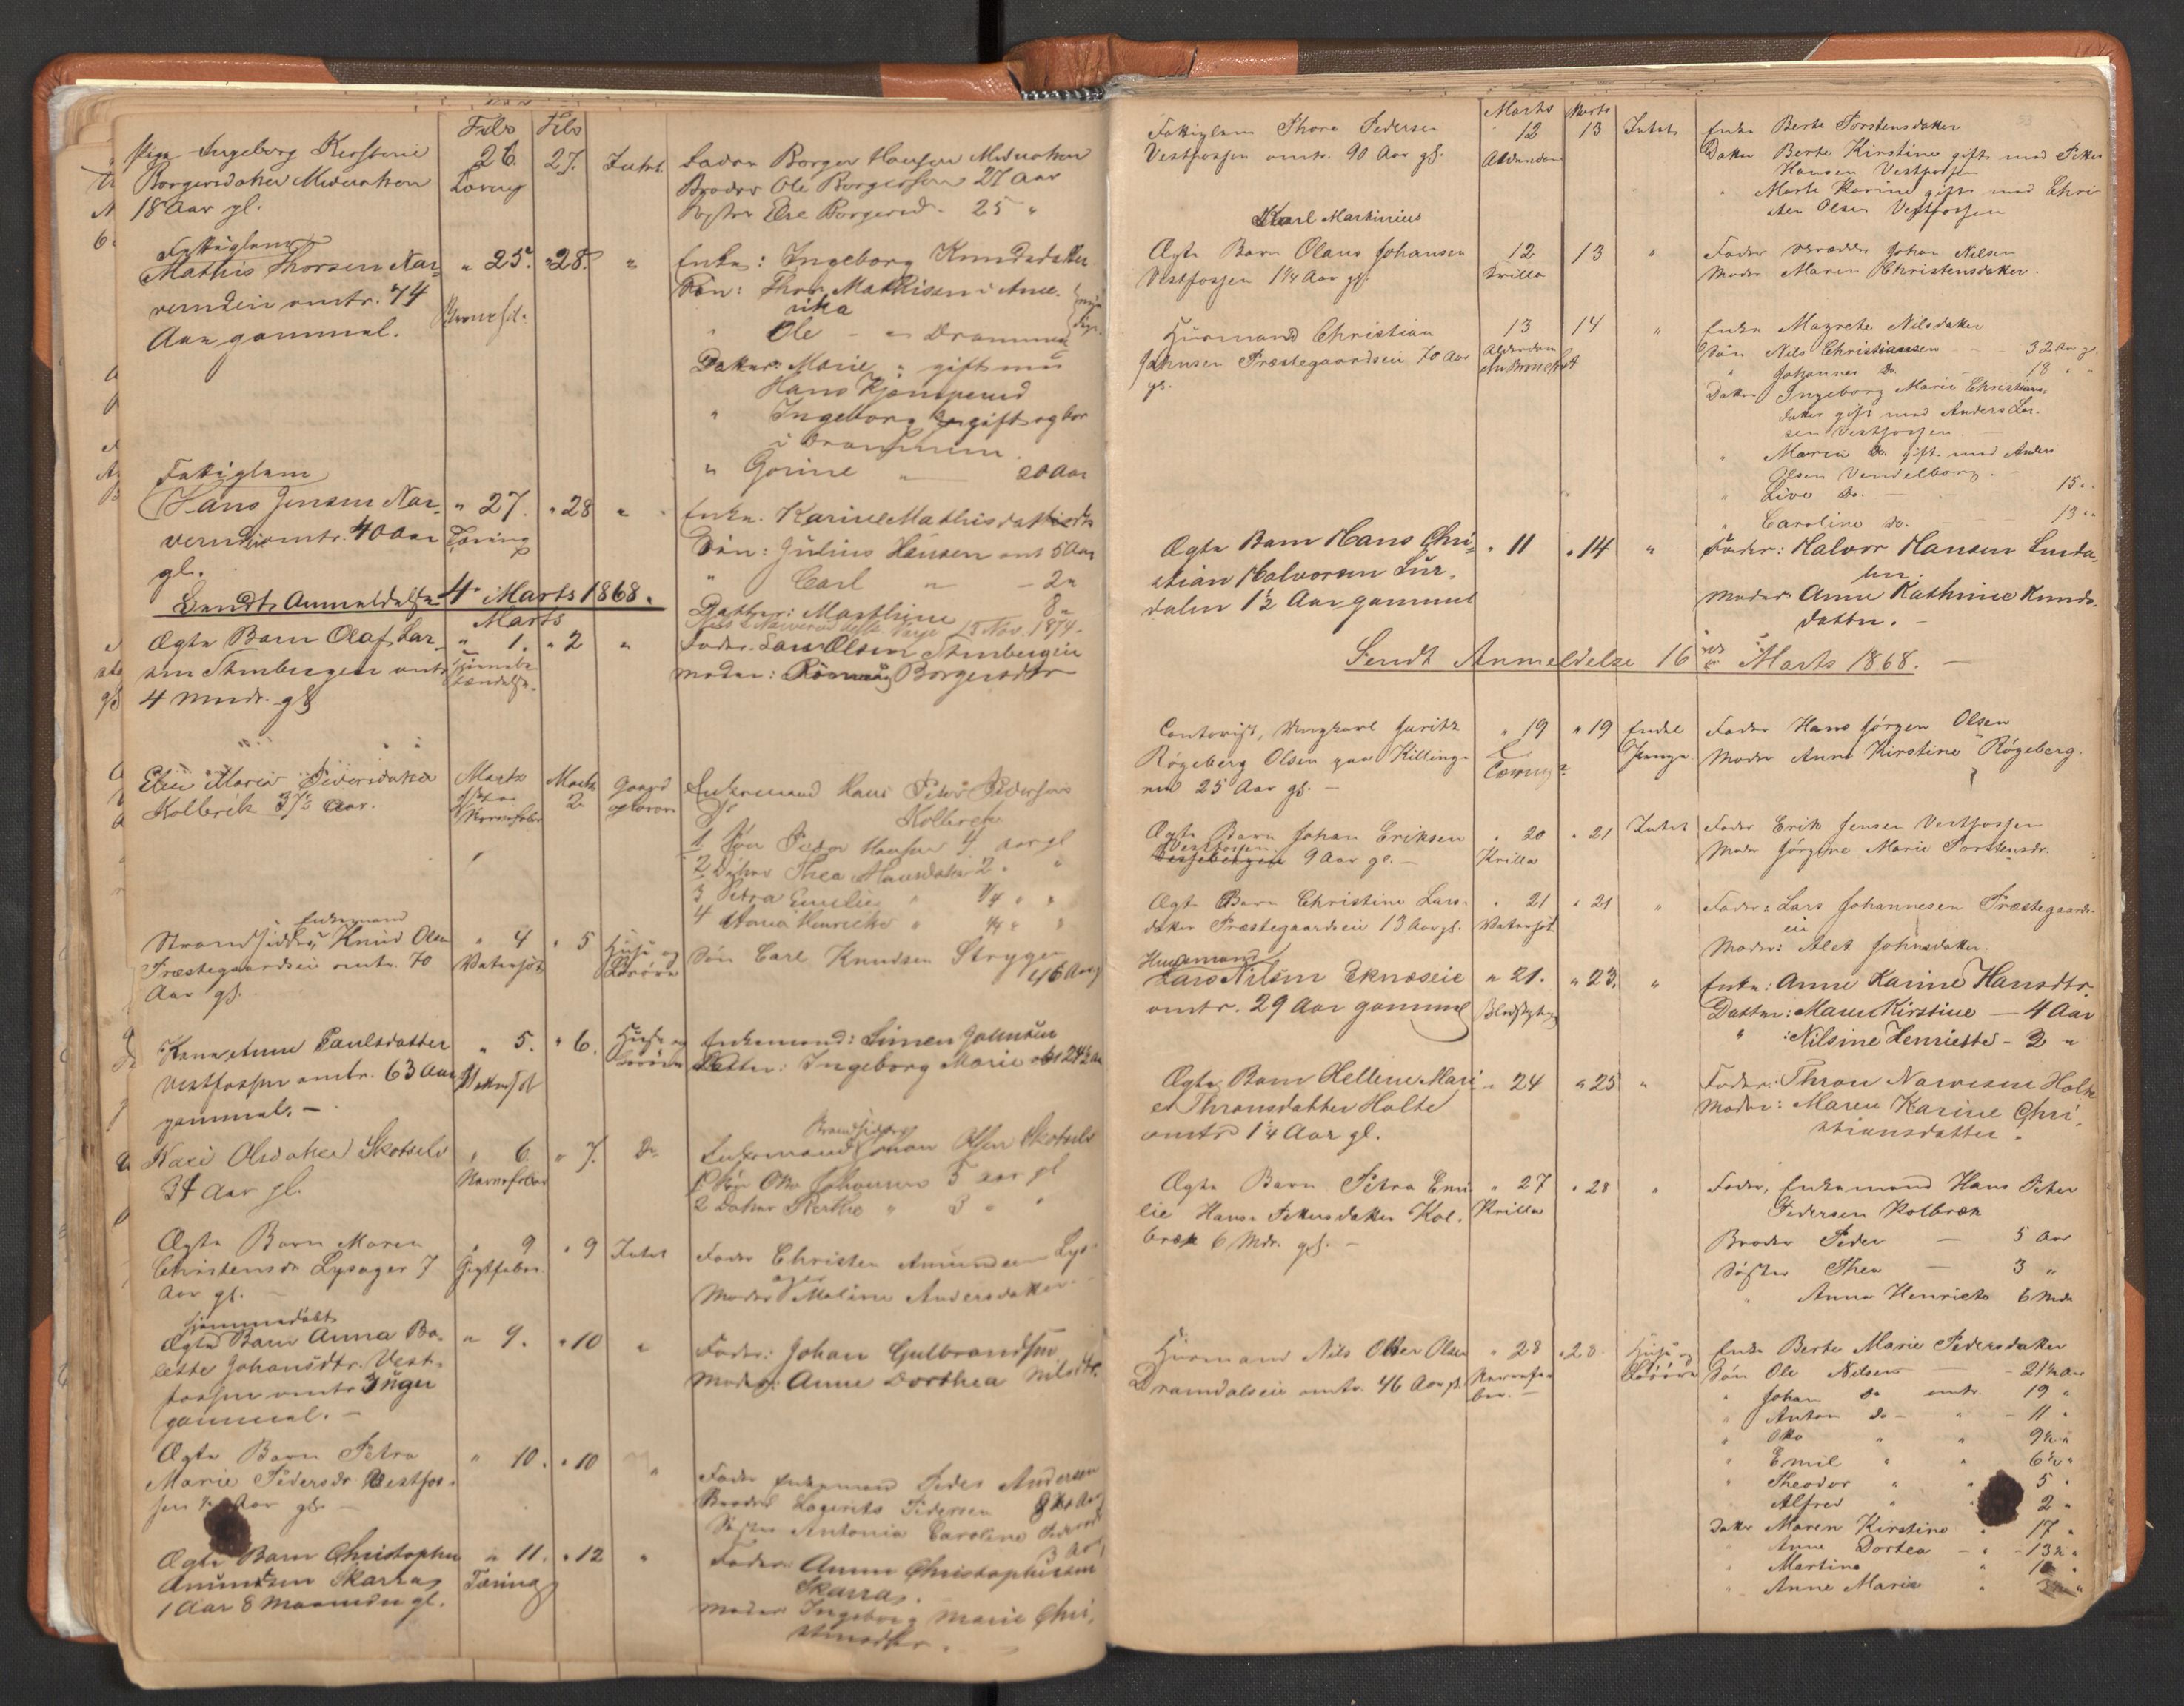 Febr Febr
Pige Ingeborg Kirstine 26. 27. Intet Fader Borger Hansen
Borgersdatter Tæring Broder Ole Borgersen 27 Aar
18 Aar gl. Søster Else Borgersd. 25 "
Fattiglem
Mathis Thorsen Nar " 25. " 28. " Enke: Ingeborg Knudsdatter
verudeie omtr. 74 Søn: Thor Mathisen i Ame-
Aar gammel. Brönchit. rika
" Ole " Drammen
Datter: Marie " gift med
Hans Kjæmperud
" Ingeborg " gift og bor
i Drammen.
" Gorine " 20 Aar
Fattiglem
Hans Jensen Nar- " 27. " 28 " Enke. Karine Mathisdatter
verudeie omtr. 40 Aar Tæring Søn: Julius Hansen omt 5 Aar
gl. " Carl " - 2 "
Sendt Anmeldelse 4 Marts 1868. Datter: Marthine 8 "
Marts 15 Nov. 1874.
Ægte Barn Olaf Lar- " 1. " 2 " Fader. Lars Olsen Stenbergeie
sen Stenbergeie omtr Moder: Borgersdtr
4 Mndr. gl
Elen Maria Pedersdatter Marts Marts Gaard Enkemand Hans Peter Pedersen
Kolbrek 37½ Aar. 2 og Løsøre Kolbrek
1 Søn Peder Hansen 4 aar gl
2 Datter Thea Hansdatter 2 " "
3 Petra Emilie " ¼ " "
4 Henriette " ¼ " "
Enkemand
Strandsidder Knud Olsen " 4 " 5 Huse og Søn Carl Knudsen Stryger
Præstegaardseie omtr. 70 Vatersot Løsøre 46 Aar
Aar gl.
Kone, Anne Paulsdatter " 5. " 6. Huse og Enkemand: Simen Johnsen
Vestfossen omtr. 63 Aar Vattersot Løsøre Datter: Ingeborg Marie 24½ Aar
gammel. -
Strandsidder
Kari Olsdatter Skotselv " 6. " 7. Do Enkemand Johan Olsen Skotselv
34 Aar gl. Nervefeber 1 Søn Otto Johansen 5 aar gl
2 Datter Berthe " 3 " "
Ægte Barn Maren " 9 " 9 Intet Fader Christen Amundsen Lys-
Christensdr Lysager 7 Gigtfeber ager
Aar gl. Moder Maline Andersdatter
hjemmedøbt
Ægte Barn Anna Bo- " 9. " 10 " Fader: Johan Gulbrandsen
lette Johansdtr. Vest- Moder: Anne Dorthea Nilsdtr.
fossen omtr 3 Uger
gammel. -
Ægte Barn Petra " 10. " 10 " Fader Enkemand Peder Andersen
Marie Pedersdr Vestfos- Broder Lagerits Pedersen
sen Aar gl. - Søster Antonia Caroline Pedersd
3 Aar
Ægte Barn Christopher " 11. " 12 " Fader: Amun Christophersen
Amundsen Skarra Tæring Skarra.
1 Aar 8 Maaneder gl. Moder: Ingeborg Marie Chri-
stensdtr.
Marts Marts
Fattiglem Thora Pedersen 12 13 Intet Enke Berte Torstensdatter
Vestfossen omtr. 90 Aar gl. Alderdom Datter Berte Kirstine gift med Peter
Hansen Vestfossen
" Marte Karine gift med Chri-
sten Olsen Vestfossen
Karl Martinius
Ægte Barn Olaus Johansen 12 13 " Fader Johan Nilsen
Vestfossen 1¼ Aar gl. Moder Maren Christensdatter.
Husmand Christian 13 14 " Enke Magrete Nilsdatter
Johnsen Præstegaardseie 70 Aar Alderdom Søn Nils Christiansen 32 Aar gl.
gl. " Johannes Do. - 18 " "
Datter Ingeborg Marie Christians-
datter gift med Anders Lar-
sen Vestfossen
" Maren Do. gift med Anders
Olsen Vendelborg.
" Live Do. - 15 "
" Caroline Do. - 13 "
Ægte Barn Hans Chri- " 11 " 14 " Fader: Halvor Hansen Lurda-
stian Halvorsen Lur- len.
dalen 1½ Aar gammel Moder: Anne Kathrine Knuds-
datter. -
Sendt Anmeldelse 16de Marts 1868. -
Contorist, Ungkarl Jurits " 19 " 19 Endel Fader Hans Jørgen Olsen
Røgeberg Olsen paa Killing- Tæring Penge Moder Anne Kirstine Røgeberg.
rud 25 Aar gl. -
Ægte Barn Johan Eriksen " 20 " 21 Intet Fader Erik Jensen Vestfossen
Vestfossen 9 Aar gl. - Moder Jørgine Marie Torstensdr.
Ægte Barn Christine Lars- " 21 " 21 " Fader: Lars Johannesen Præstegaards-
datter Præstegaardseie 13 Aar gl. Vatersot eie
Moder: Alet Johnsdatter.
Husmand
Lars Nilsen Eknæseie " 21. " 23. " Enke: Anne Karine Hansdtr.
omtr. 29 Aar gammel Datter: Maren Kirstine - 4 Aar
" : Nilsine Henriette - 2 "
Ægte Barn Hellene Mari- " 24 " 25 " Fader: Thron Narvesen Holte
e Thronsdatter Holte Moder: Maren Karine Chri-
omtr 1¼ Aar gl. stiansdatter.
Ægte Barn Petra Emi- " 27 " 28 " Fader, Enkemand Hans Peter
lie Hans Pettersdatter Kol- Pedersen Kolbræk
bræk 6 Mdr. gl. - Broder Peder - 5 Aar
Søster Thea - 3 "
" Anna Henriete 6 Mdr
Husmand Nils Otter Olsen " 28 " 28 Huse og Enke Berte Marie Pedersdatter
Dramdalseie omtr. 46 Aar gl. Nervefe- Løsøre Søn Ole Nilsen - 21½ Aar
ber. - " Johan Do omtr. 19 "
" Anton do - " - 11 "
" Otto " " 9½ "
" Emil " " 6½ "
" Theodor " " 5 "
" Alfred " 2 "
Datter Maren Kirstine " 17 "
" Anne Dortea - " - 13½ "
" Martine "
" Anne Marie "